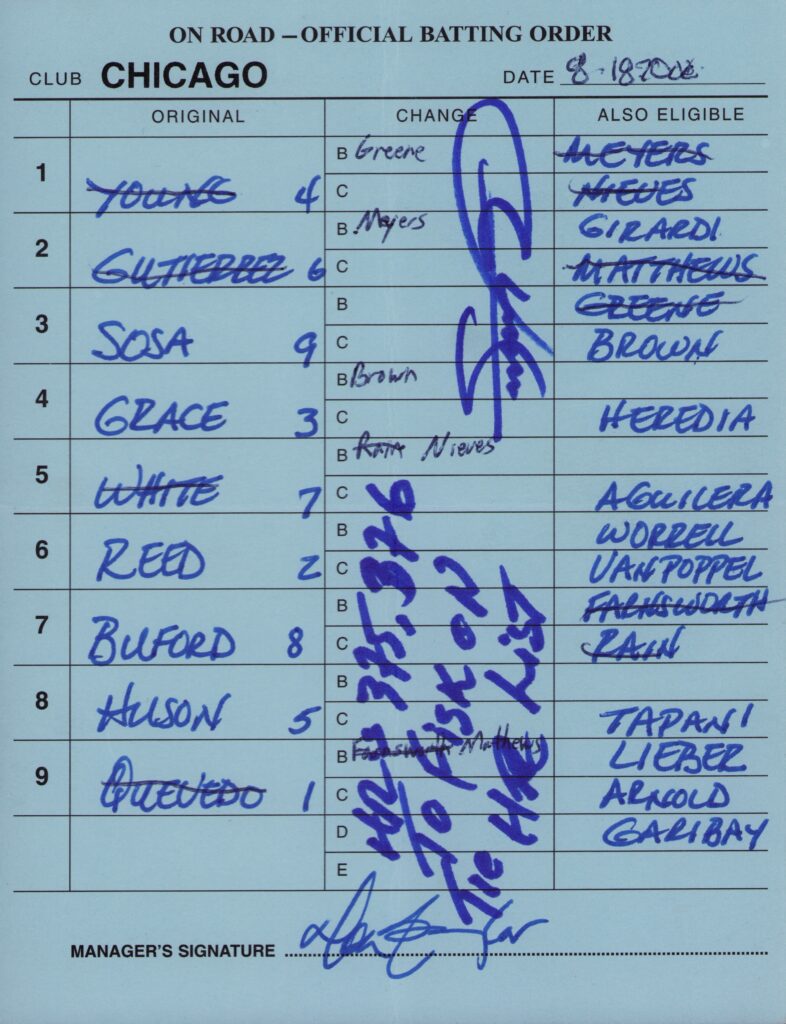 ON ROAD – OFFICIAL BATTING ORDER
CLUB CHICAGO DATE 8-18-2000
ORIGINAL CHANGE ALSO ELIGIBLE
1 YOUNG 4 B Greene MEYERS
C NIEVES
2 GUTIERREZ 6 B Meyers GIRARDI
C MATTHEWS
3 SOSA 9 B GREENE
C BROWN
4 GRACE 3 B Brown
C HEREDIA
5 WHITE 7 B Rain Nieves
C AGUILERA
6 REED 2 B WORRELL
C VAN POPPEL
7 BUFORD 8 B FARNSWORTH
C RAIN
8 HUSON 5 B
C TAPANI
9 QUEVEDO 1 B Farnsworth Mathews LIEBER
C ARNOLD
D GARIBAY
E
Sammy Sosa
HR-s 375, 376
To Fisk ON
The HR List
MANAGER'S SIGNATURE Don Baylor